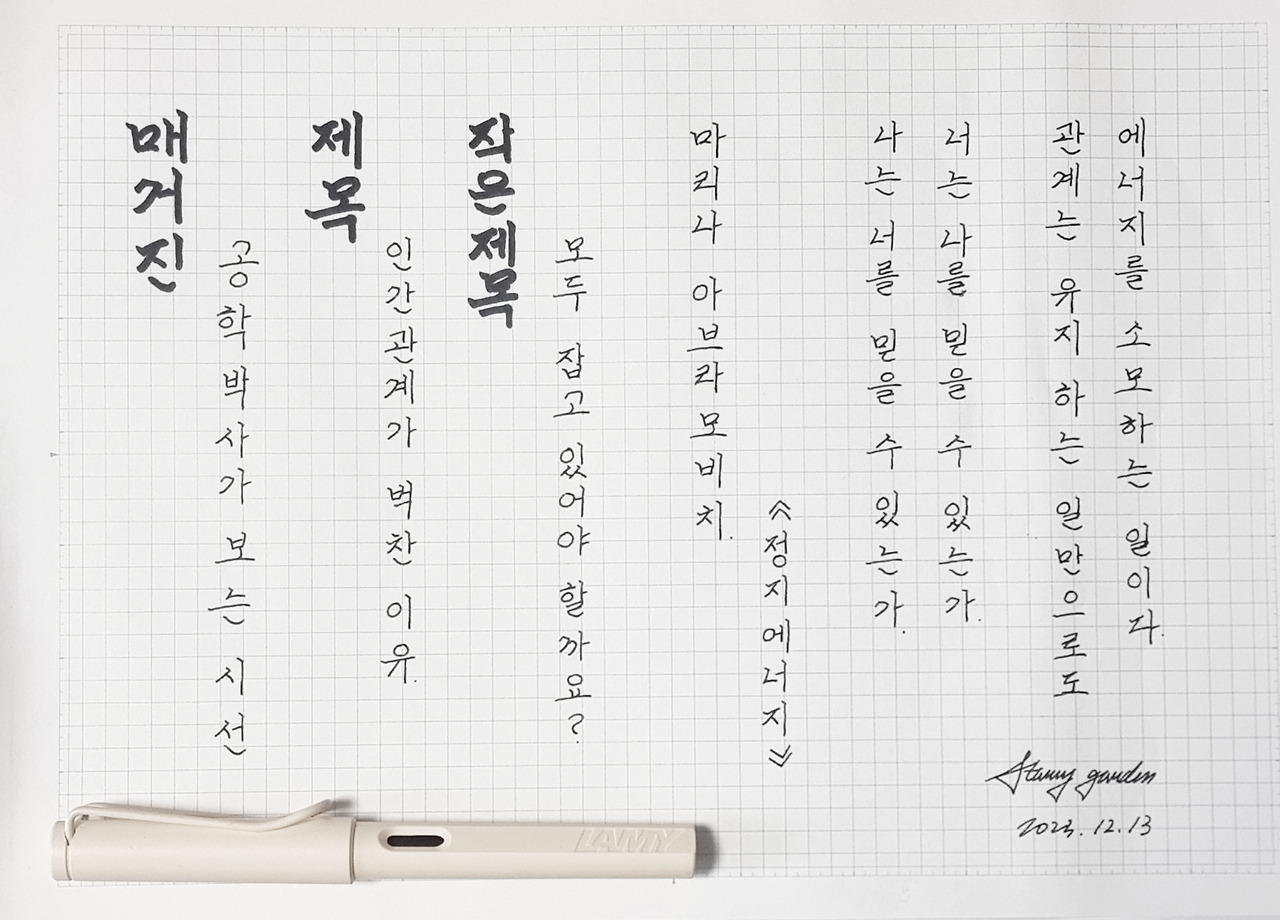 매거진
공학박사가 보는 시선
제목
인간관계가 벅찬 이유.
작은제목
모두 잡고 있어야 할까요?
마리나 아브라모비치.
《정지에너지》
나는 너를 믿을 수 있는가.
너는 나를 믿을 수 있는가.
관계는 유지 하는 일만으로도
에너지를 소모하는 일이다.
Starry garden
2023.12.13
LAMY